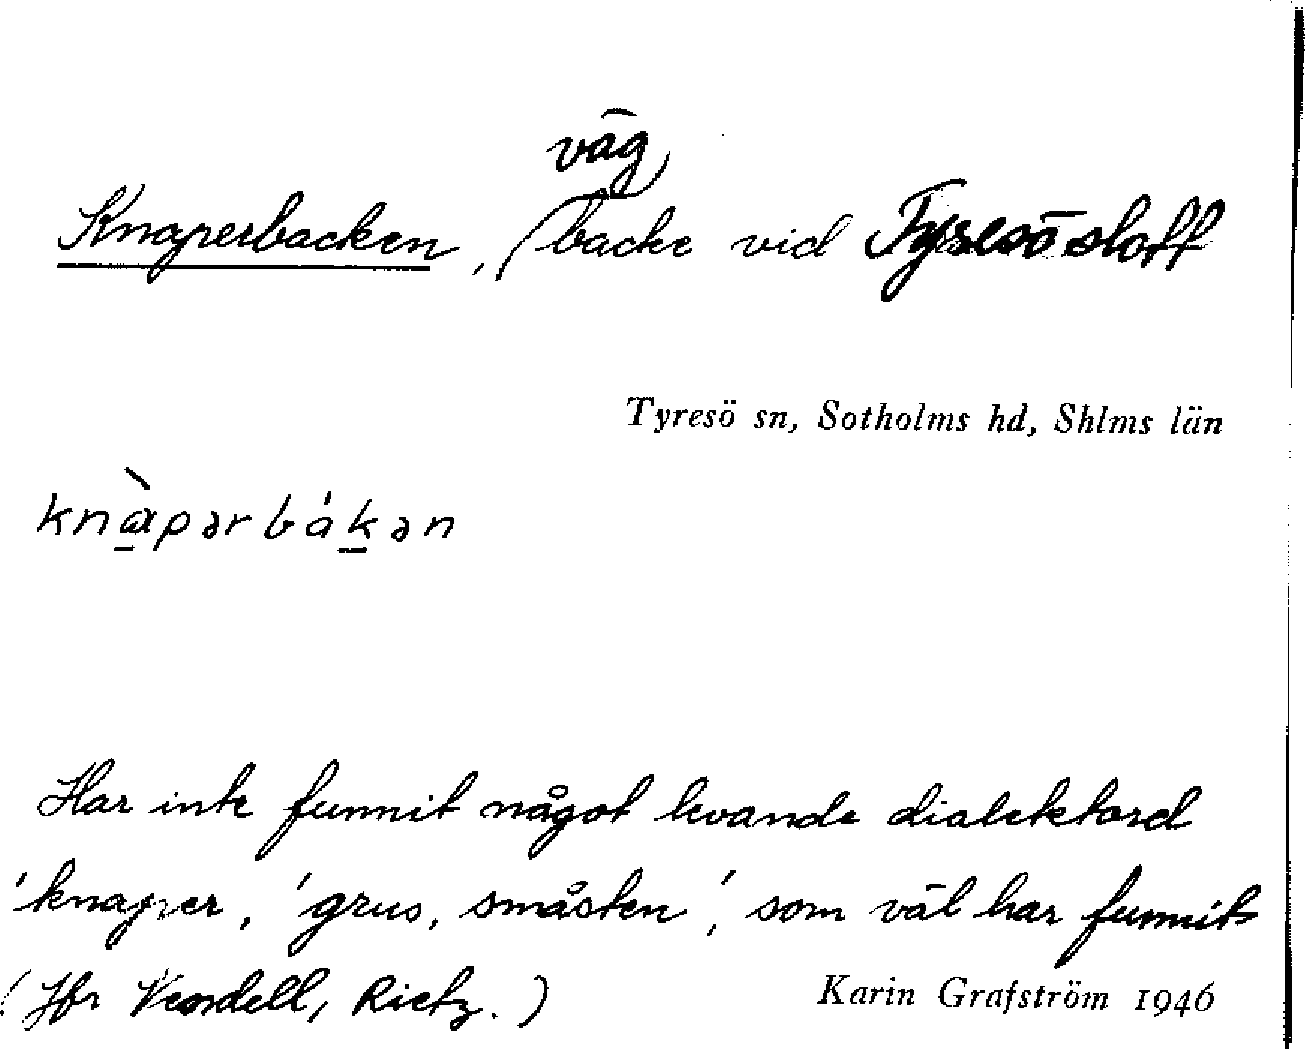 Knaperbacken, vägbacke vid Tyresö slott
Tyresö sn, Sotholms hd, Shlms län
knàpərbákən
Har inte funnit något levande dialektord
'knaper, 'grus, småsten', som väl har funnit
(Jfr Vendell, Rietz.)
Karin Grafström 1946